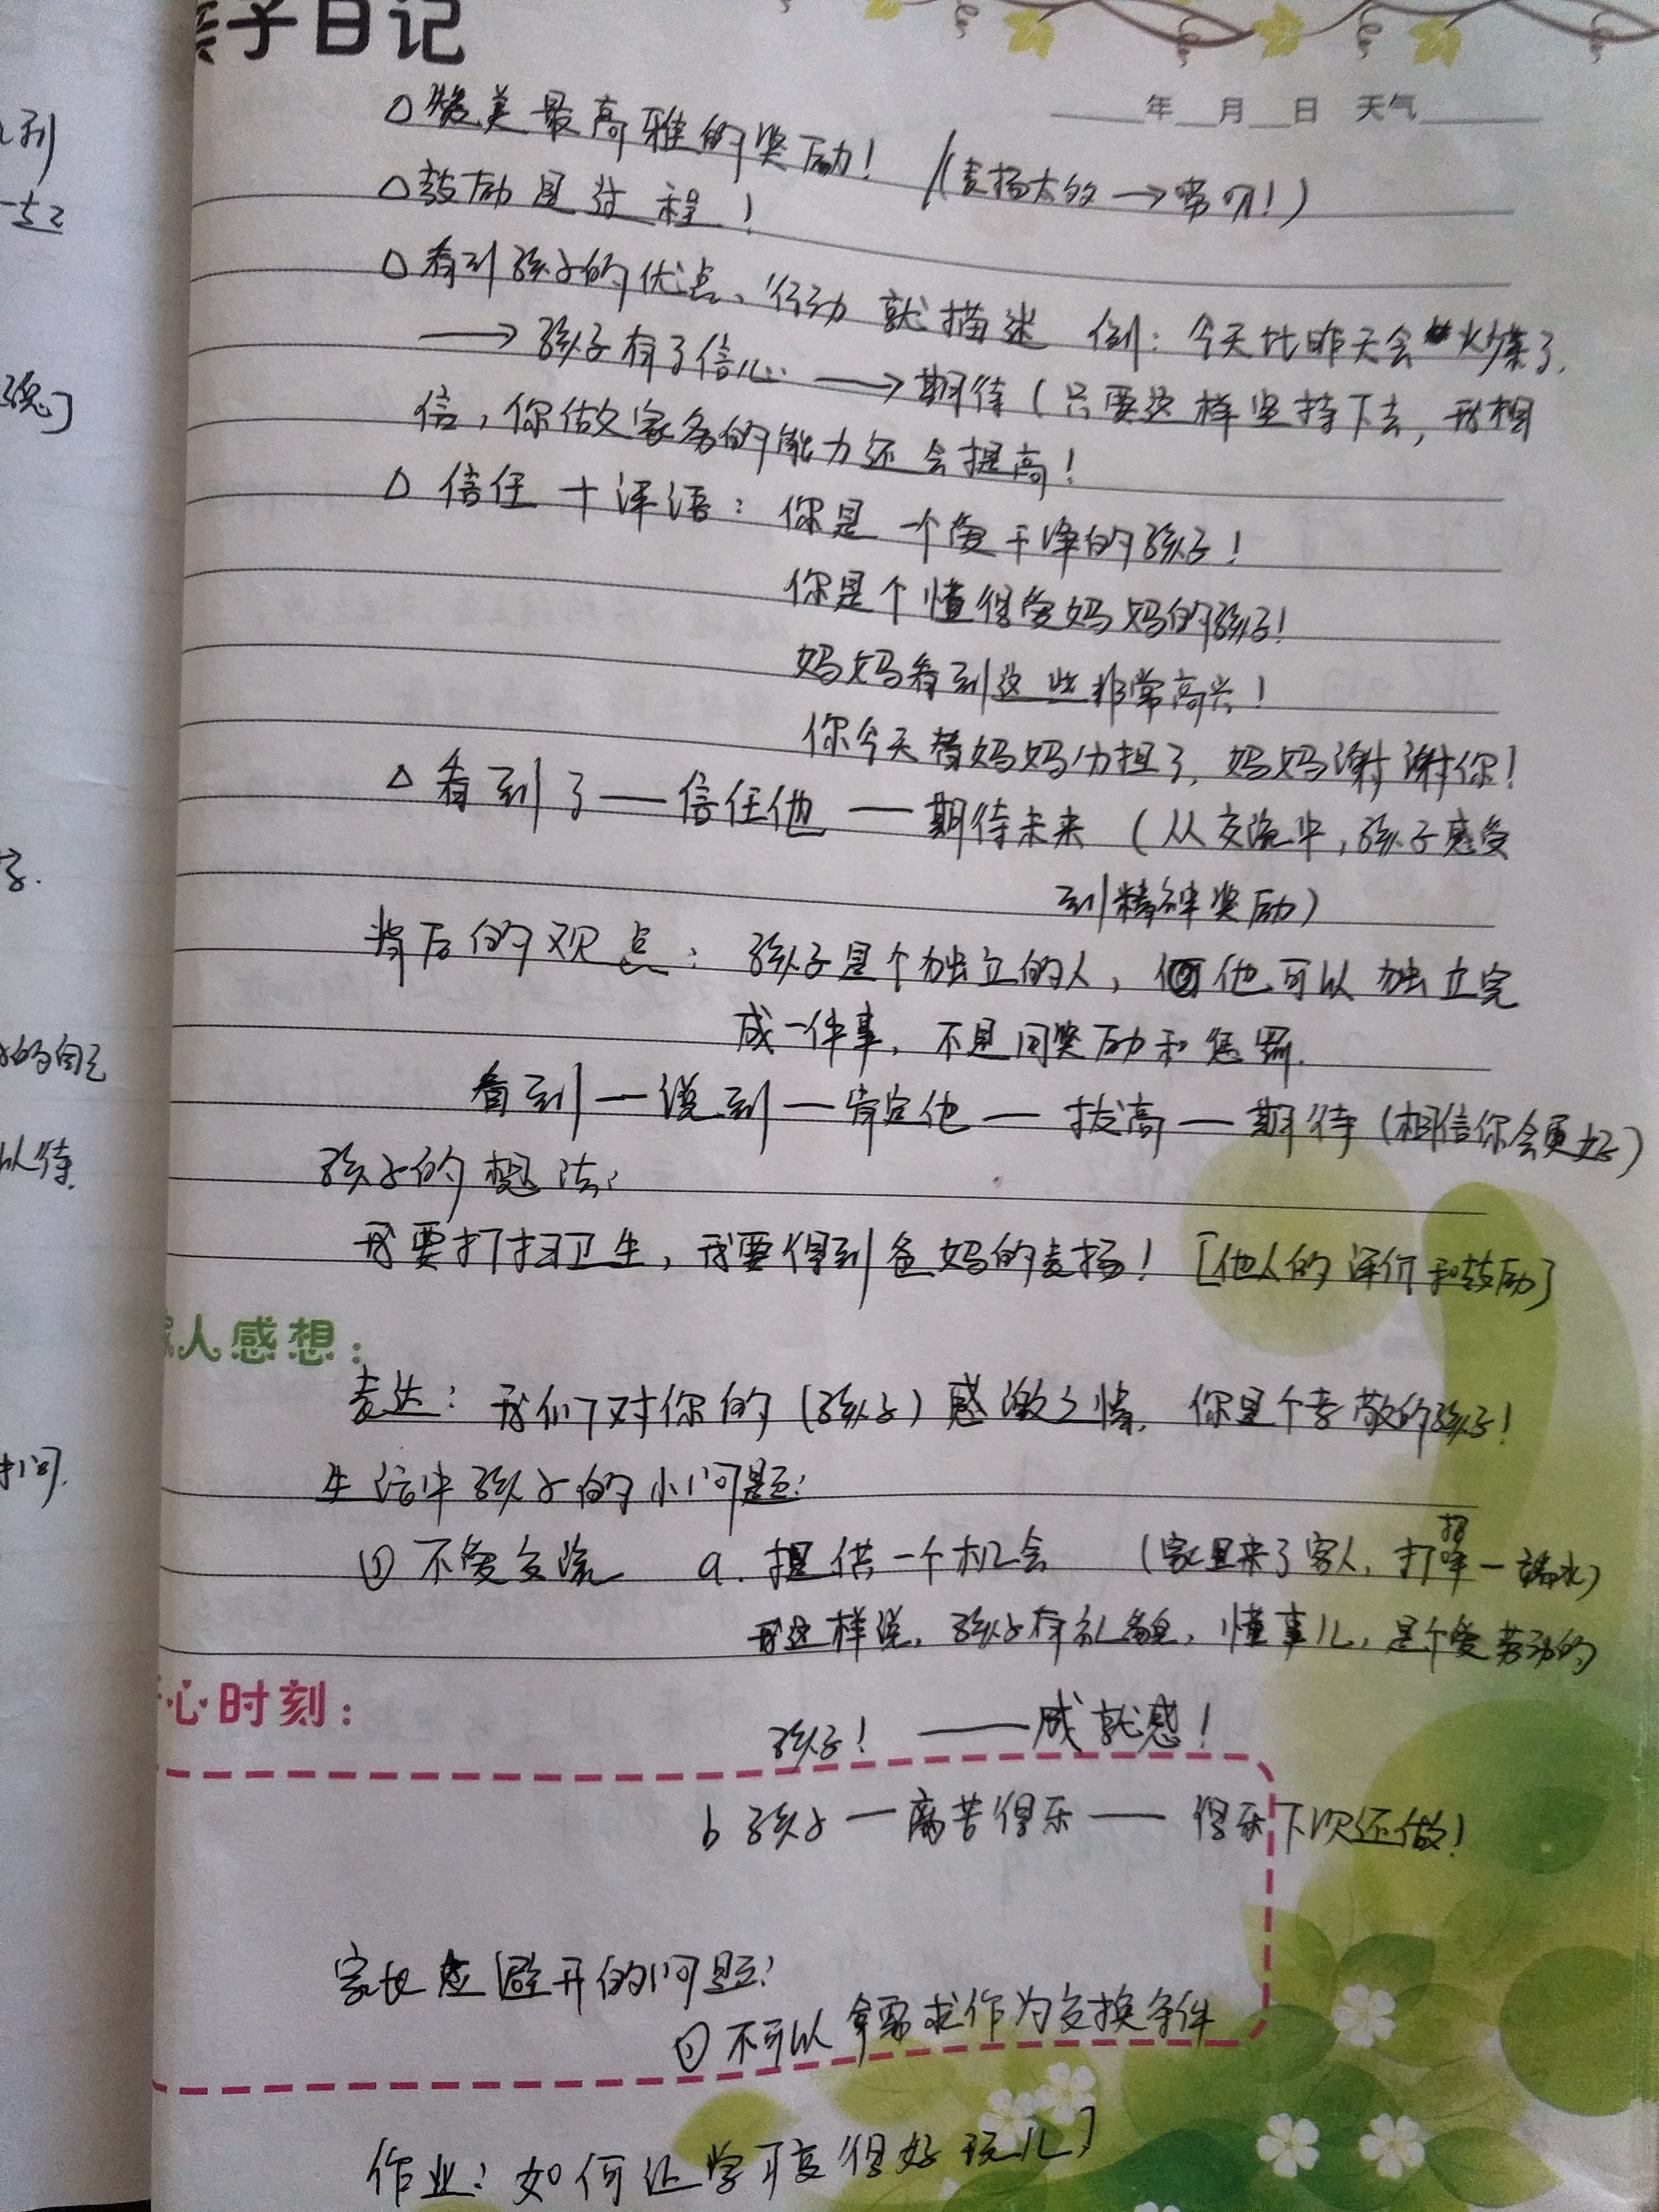 亲子日记
年 月 日 天气
△赞美最高雅的奖励!
(表扬太多→嘴叼!)
△鼓励是过程!
△看到孩子的优点、行动就描述 例:今天比昨天会炒菜了,
→孩子有了信心→期待(只要这样坚持下去,我相
信,你做家务的能力还会提高!
△信任+评语:你是一个爱干净的孩子!
你是个懂得爱妈妈的孩子!
妈妈看到这些非常高兴!
你今天替妈妈分担了,妈妈谢谢你!
△看到了—信任他—期待未来(从交流中,孩子感受
到精神奖励)
背后的观点:孩子是个独立的人,他可以独立完
成一件事,不是同奖励和惩罚.
看到—说到—肯定他—拔高—期待(相信你会更好)
孩子的想法:
我要打扫卫生,我要得到爸妈的表扬![他人的评价和鼓励]
家人感想:
表达:我们对你的(孩子)感激之情,你是个孝敬的孩子!
生活中孩子的小问题:
①不爱交流 a.提供一个机会 (家里来了客人,打招呼一端水)
我这样说,孩子有礼貌,懂事儿,是个爱劳动的
开心时刻:
孩子!——成就感!
b 孩子—离苦得乐——得乐下次还做!
家长应避开的问题:
①不可以拿需求作为交换条件
作业:如何让学习变得好玩儿]